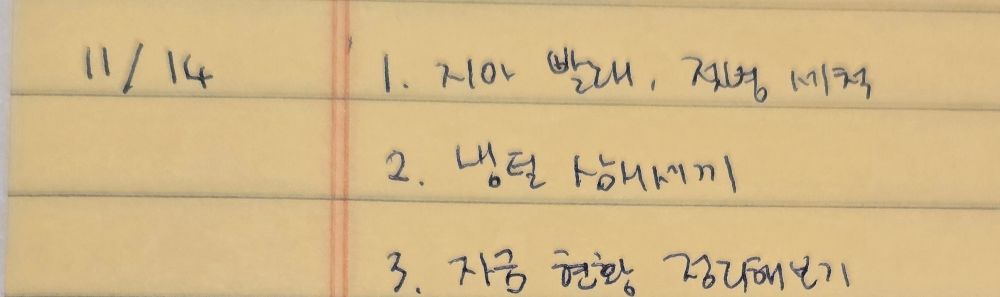 11/14 1. 지아 빨래, 젖병 세척
2. 냉털 삼시세끼
3. 자금 현황 정리해보기